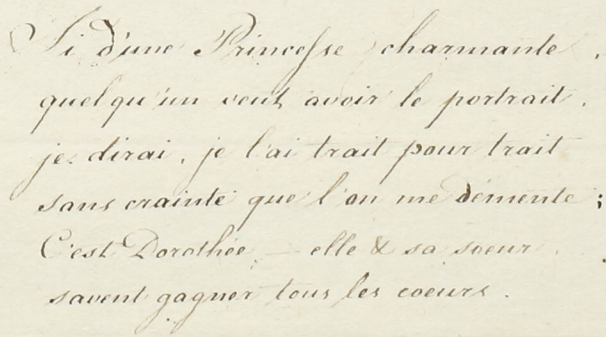 Si d'une Princesse charmante,
quelqu'un veut avoir le portrait.
je dirai, je l'ai trait pour trait
sans crainte que l'on me démente;
C'est Dorothée, — elle & sa soeur
savent gagner tous les coeurs.